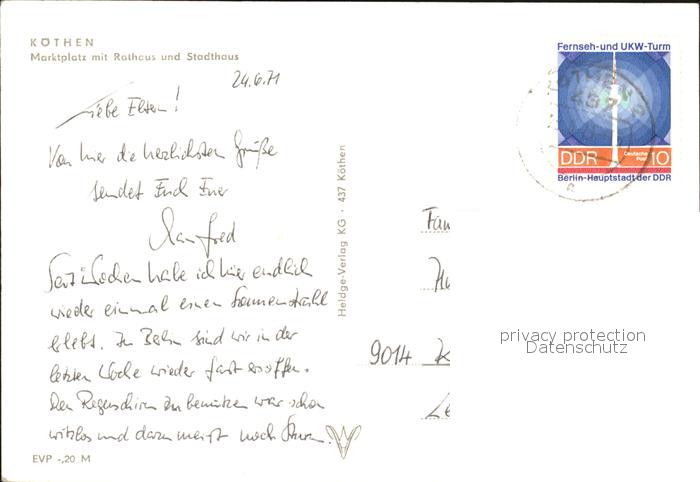 KÖTHEN
Marktplatz mit Rathaus und Stadthaus
24.6.71
Liebe Eltern!
Von hier die herzlichsten Grüße
sendet Euch Euer
Manfred
Seit Wochen habe ich hier endlich
wieder einmal einen Sonnenstrahl
erlebt. In Berlin sind wir in der
letzten Woche wieder fast ersoffen.
Den Regenschirm zu benutzen war schon
witzlos und dazu meist noch Sturm.
EVP -,20 M
Heldge-Verlag KG · 437 Köthen
Fernseh-und UKW-Turm
DDR
Deutsche Post
10
Berlin-Hauptstadt der DDR
Fam
9014 K
privacy protection
Datenschutz